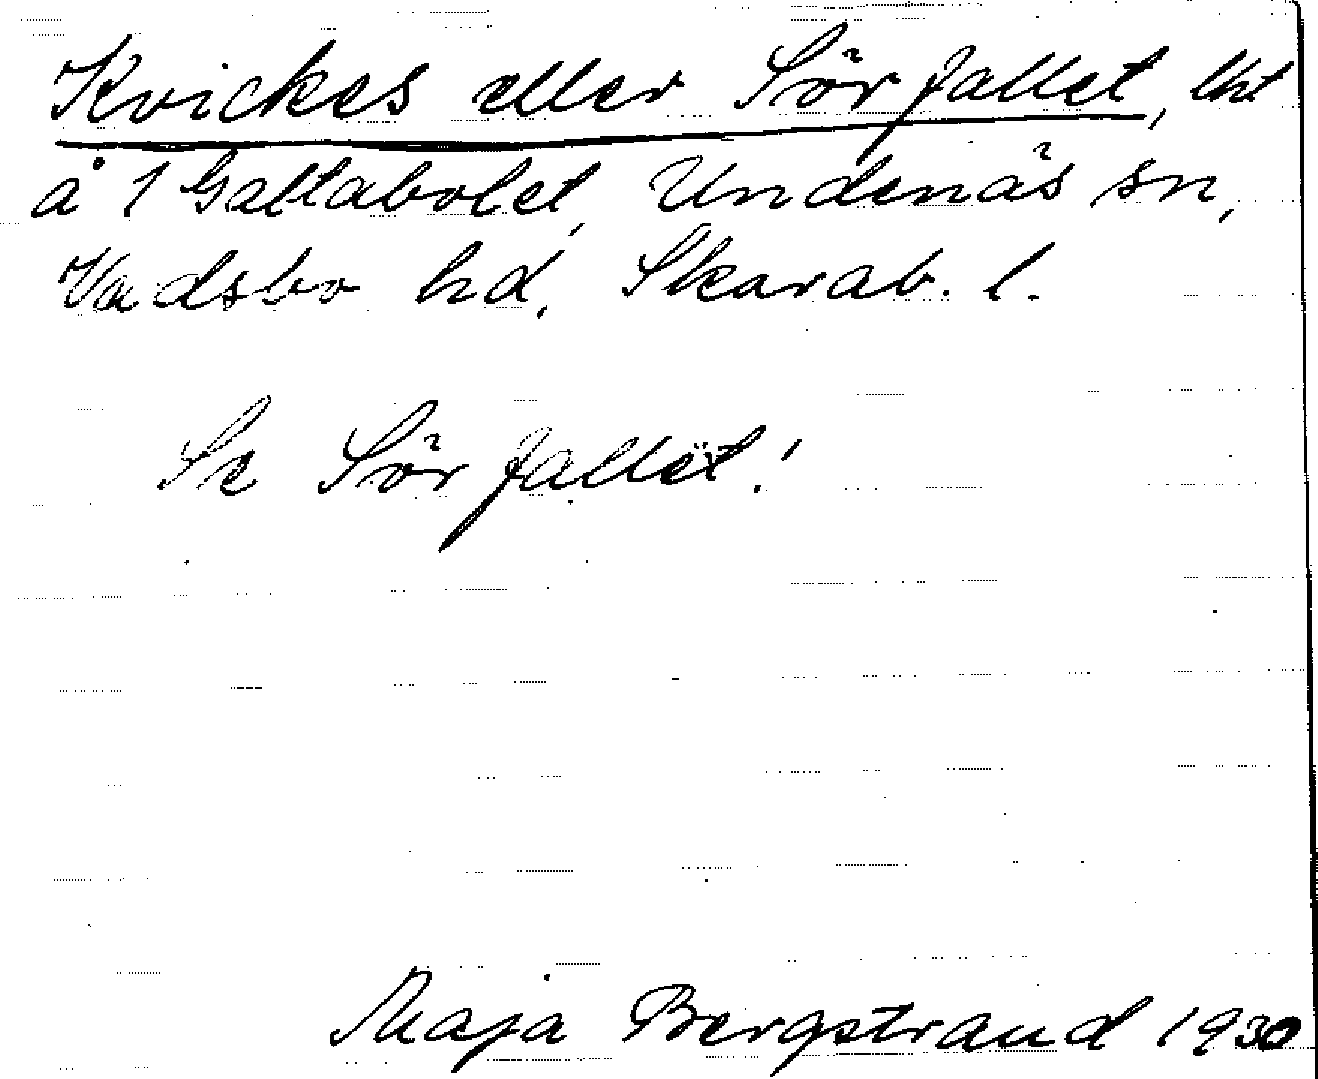 Kvickes eller Sörfallet, lht
å 1 Galtabolet, Undenäs sn,
Vadsbo hd, Skarab. l.
Se Sörfallet!
Maja Bergstrand 1930